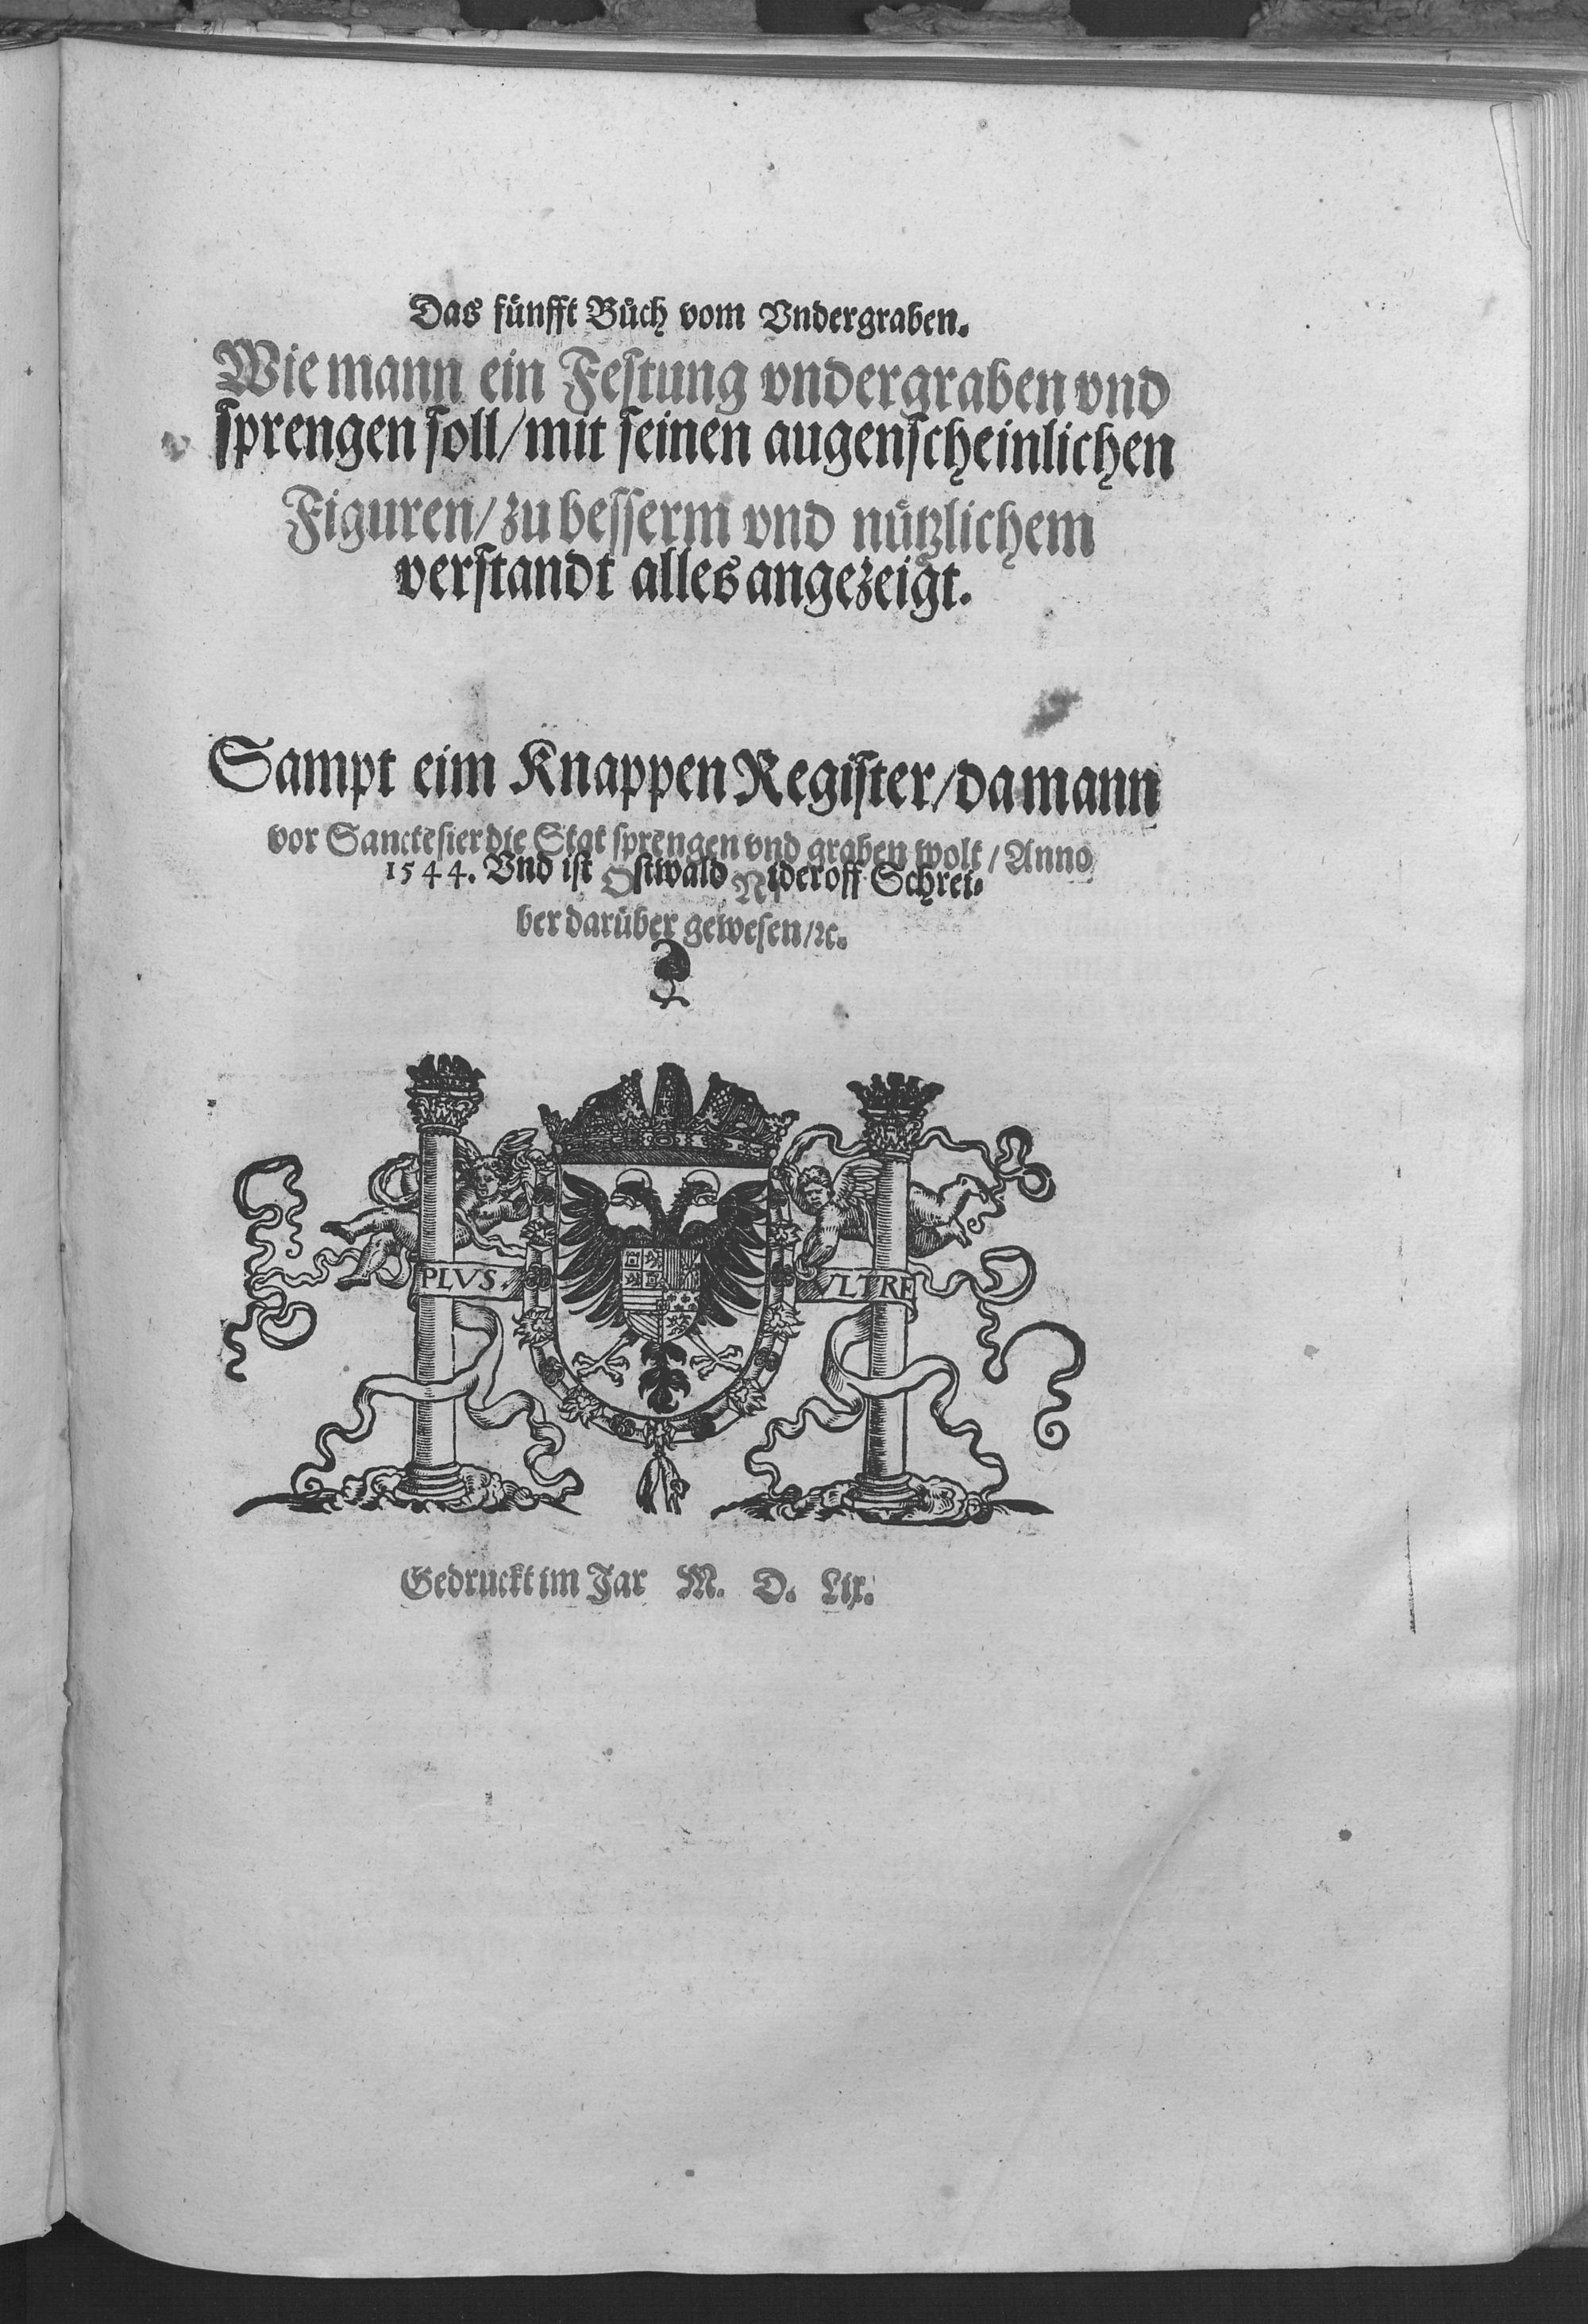 Das fünfft Bůch vom Vndergraben.
Wie mann ein Festung vndergraben vnd
sprengen soll/mit seinen augenscheinlichen
Figuren/zu besserm vnd nützlichem
verstandt alles angezeigt.
Sampt eim Knappen Register/da mann
vor Sanctesier die Stat sprengen vnd graben wolt/Anno
1544. Vnd ist Ostwald Nideroff Schrei-
ber darüber gewesen/ꝛc.
PLVS. VLTRE
Gedruckt im Jar M. D. Lix.